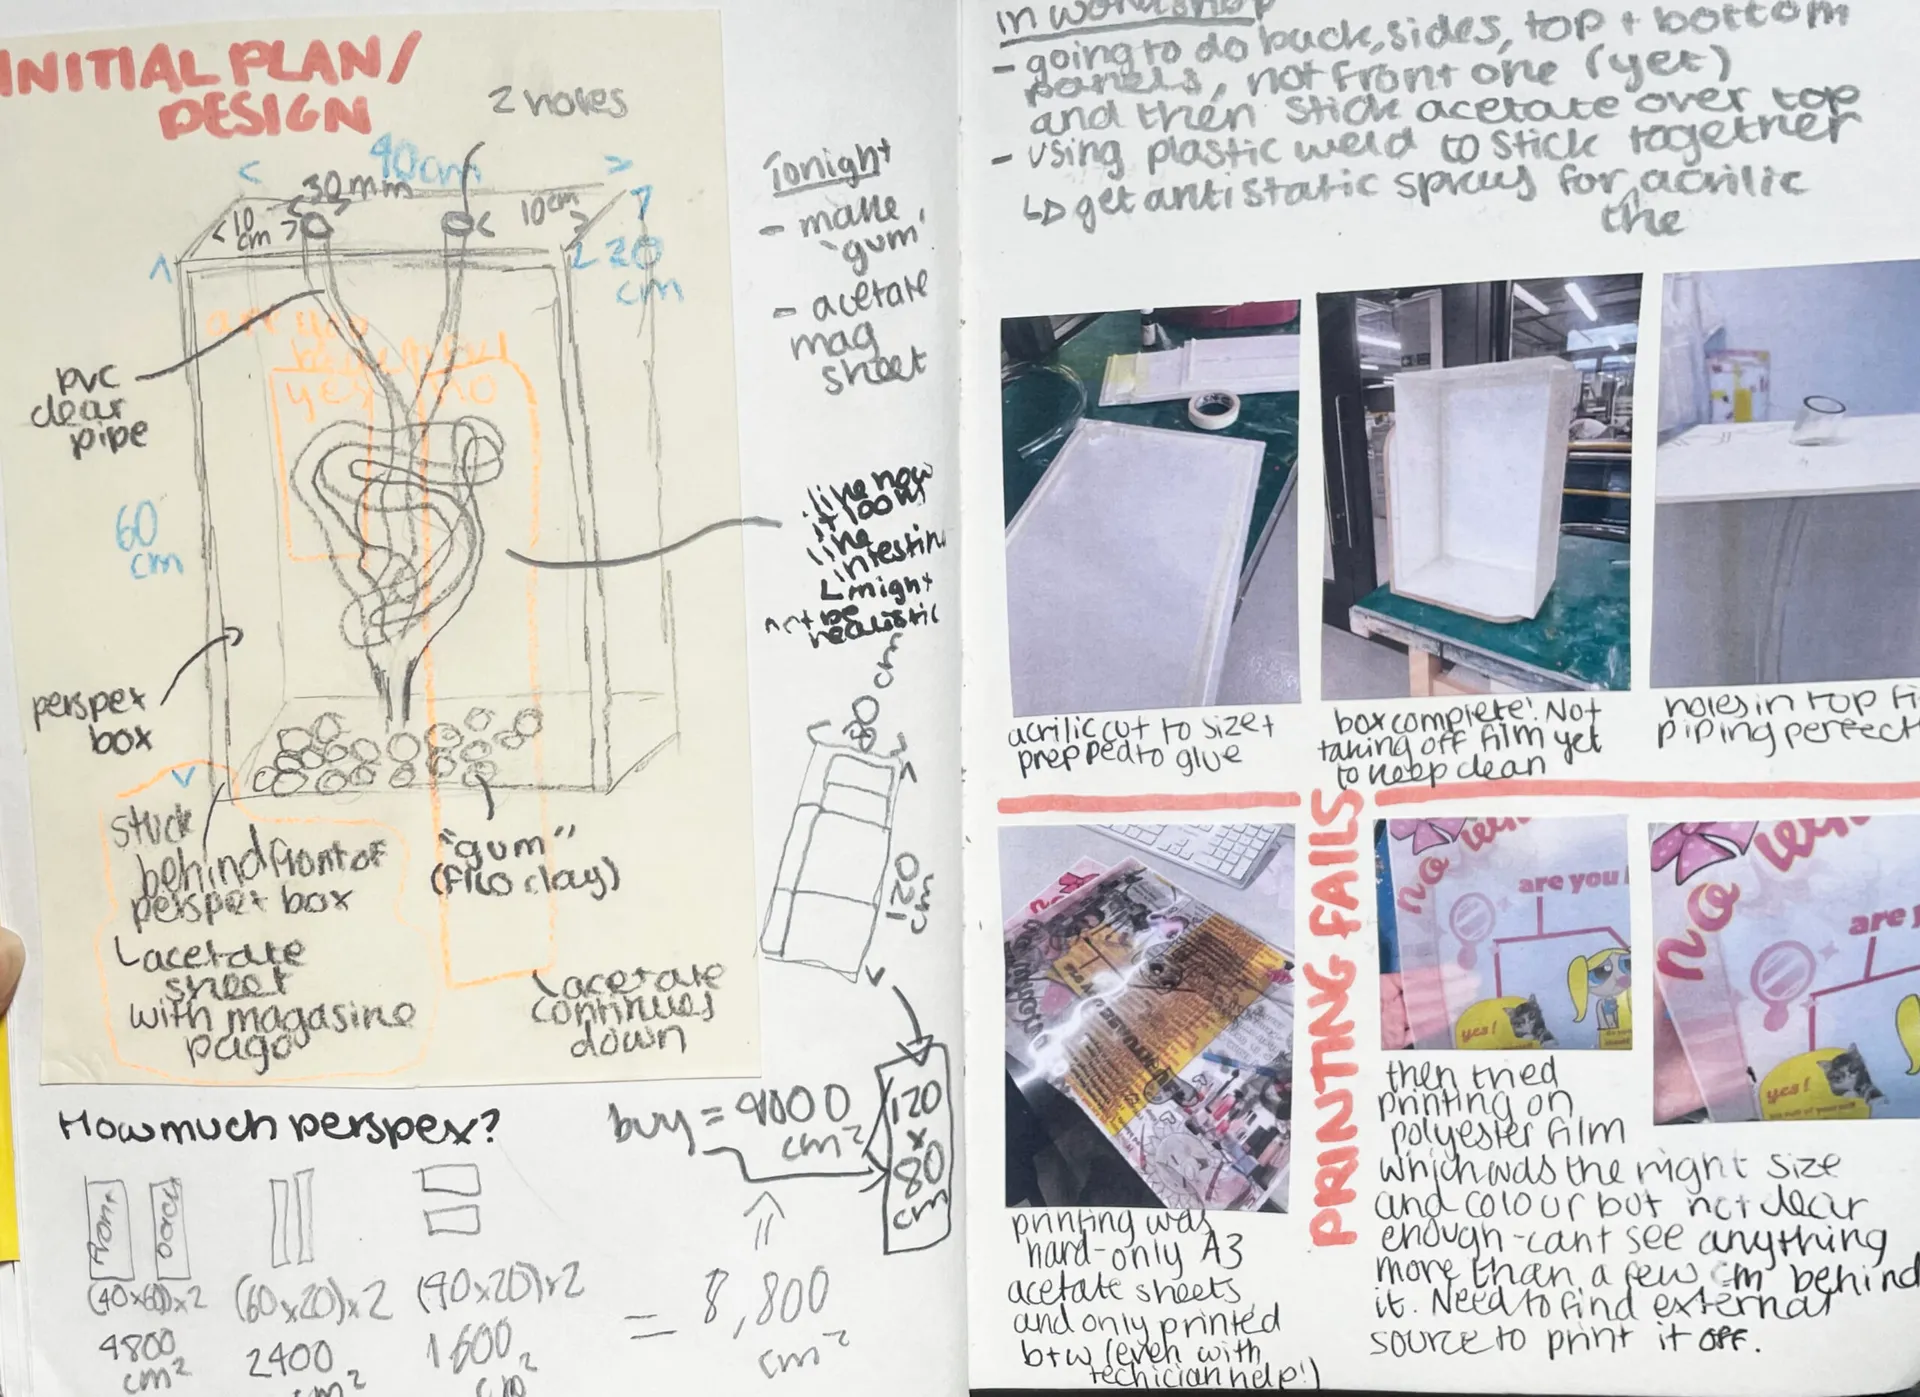 INITIAL PLAN/
DESIGN
2 holes
40cm
30mm
10
cm
10cm
20
cm
are you
yes
no
pvc
clear
pipe
60
cm
perspex
box
stuck
behind front of
perspex box
acetate
sheet
with magasine
page
"gum"
(fimo clay)
acetate
continues
down
Tonight
- make
'gum'
- acetate
mag
sheet
like how
it looks
like
intestine
might
not be
realistic
80 cm
120
cm
How much perspex?
front
back
(40x60)x2
4800
cm²
(60x20)x2
2400
cm²
(40x20)x2
1600
cm²
= 8,800
cm²
buy = 9000
cm²
120
x
80
cm
in workshop
- going to do back, sides, top + bottom
panels, not front one (yet)
and then stick acetate over top
- using plastic weld to stick together
get antistatic spray for acrilic
the
acrilic cut to size +
prepped to glue
box complete! Not
taking off film yet
to keep clean
holes in top fi
piping perfect
PRINTING FAILS
no
are you
yes!
no
are y
yes!
printing was
hard-only A3
acetate sheets
and only printed
b+w (even with
techician help!)
then tried
printing on
polyester film
which was the right size
and colour but not clear
enough-cant see anything
more than a few cm behind
it. Need to find external
source to print it off.